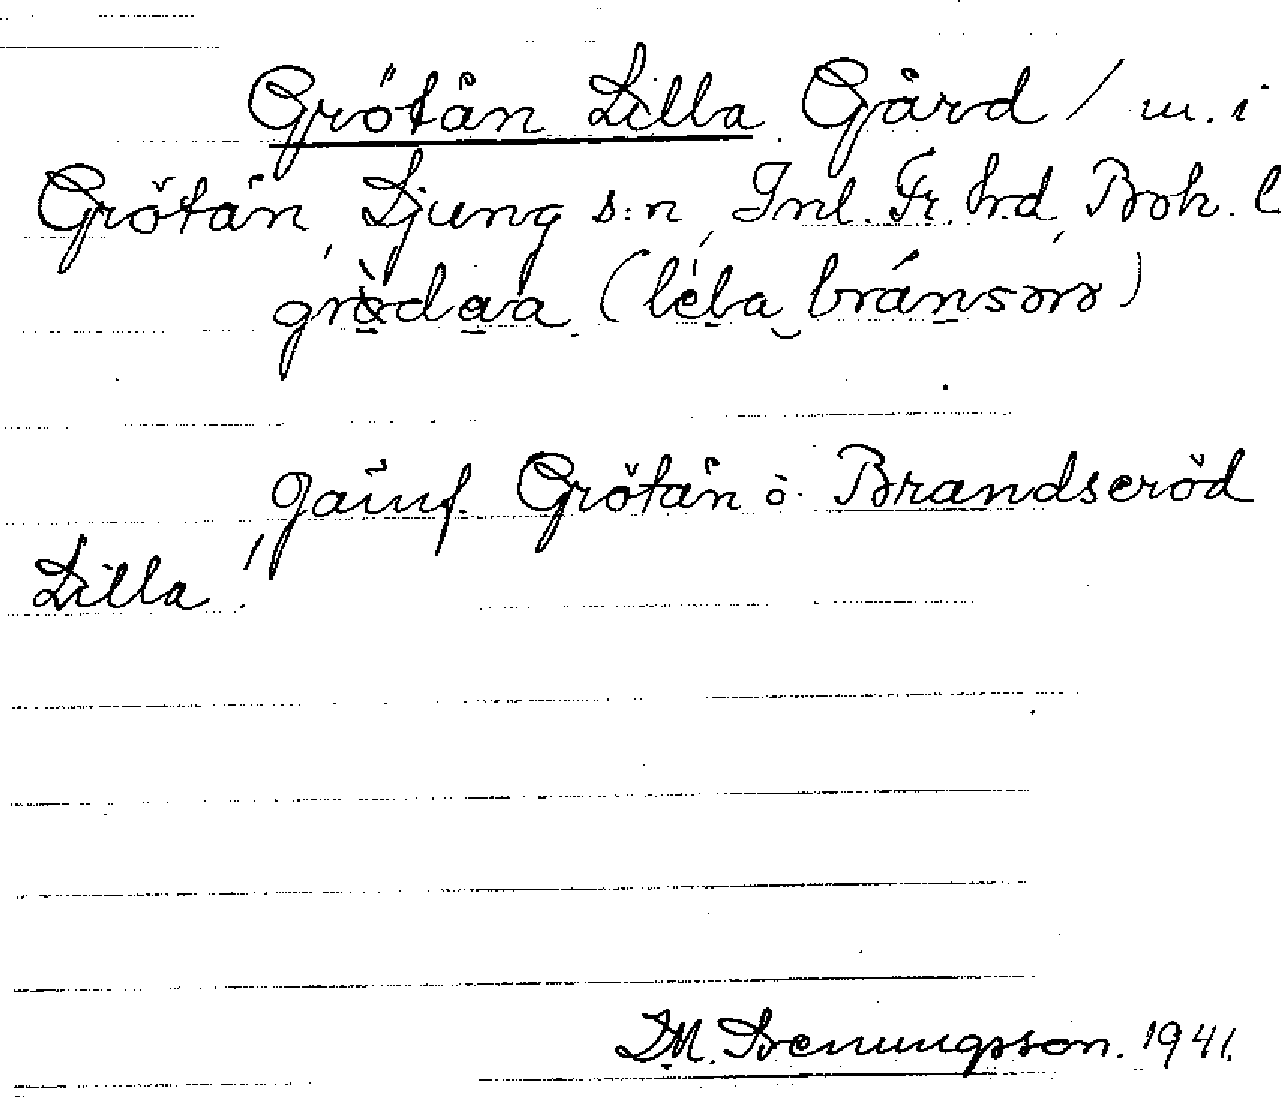 Grötån Lilla Gård / m. i
Grötån, Ljung s:n, Inl. Fr. hd, Boh. l
grödaa (léla bránsörö)
Jämf. Grötån o. Brandseröd
Lilla!
1941.